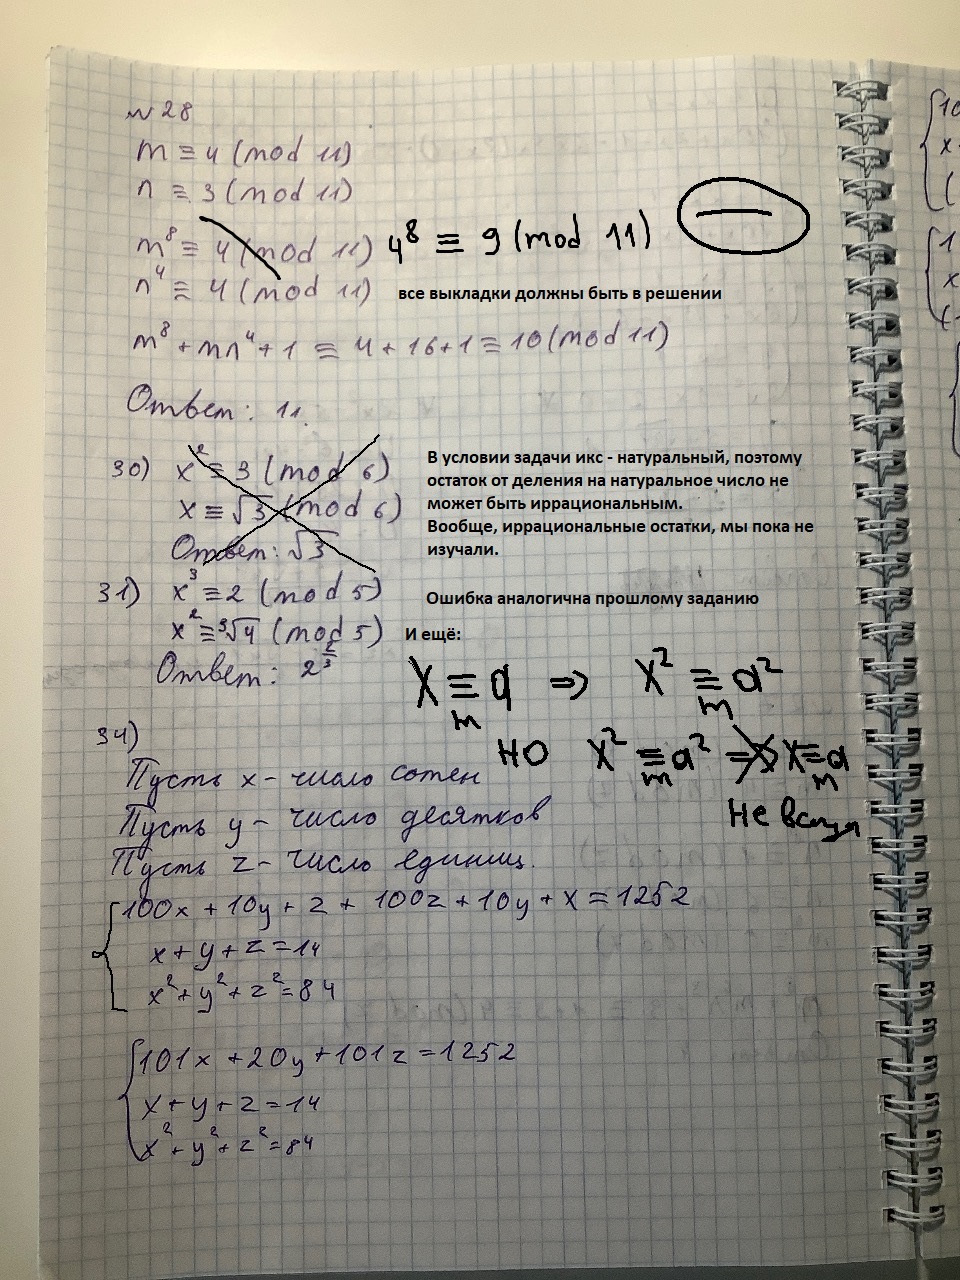 №28
m ≡ 4 (mod 11)
n ≡ 3 (mod 11)
m⁸ ≡ 4 (mod 11) 4⁸ ≡ 9 (mod 11)
n⁴ ≡ 4 (mod 11) все выкладки должны быть в решении
m⁸ + mn⁴ + 1 ≡ 4 + 16 + 1 ≡ 10 (mod 11)
Ответ: 11.
30) x² ≡ 3 (mod 6)
x ≡ √3 (mod 6)
Ответ: √3
В условии задачи икс - натуральный, поэтому
остаток от деления на натуральное число не
может быть иррациональным.
Вообще, иррациональные остатки, мы пока не
изучали.
31) x³ ≡ 2 (mod 5) Ошибка аналогична прошлому заданию
x² ≡ ³√4 (mod 5) И ещё:
Ответ: 2^(2/3)
X ≡ a ⇒ X² ≡ a²
m m
НО X² ≡ a² ⇏ X ≡ a
m m
Не всегда
34)
Пусть x - число сотен
Пусть y - число десятков
Пусть z - число единиц.
100x + 10y + z + 100z + 10y + x = 1252
x + y + z = 14
x² + y² + z² = 84
101x + 20y + 101z = 1252
x + y + z = 14
x² + y² + z² = 84
10
x
(
1
x